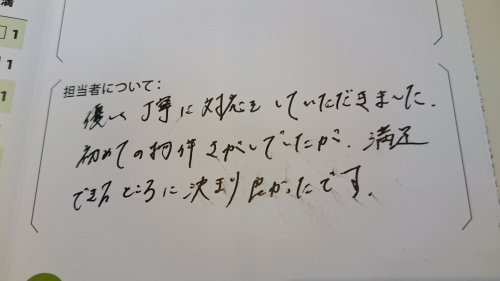 満
1
1
1
担当者について：
優しく丁寧に対応をしていただきました。
初めての物件さがしでしたが、満足
できるところに決まり良かったです。